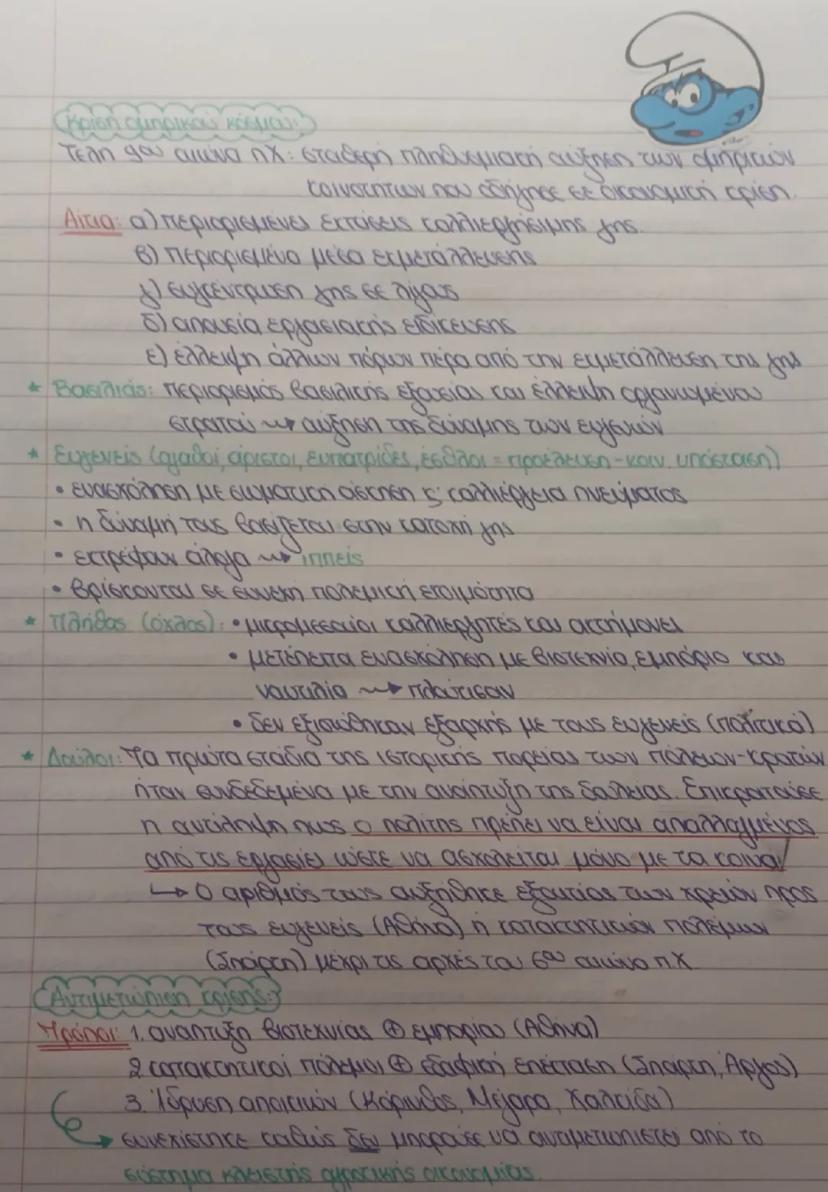 Κρίση ομηρικού κόσμου:
Τέλη 9ου αιώνα π.Χ: σταθερή πληθυσμιακή αύξηση των ομηρικών
κοινοτήτων που οδήγησε σε οικονομική κρίση.
Αίτια: α) περιορισμένες εκτάσεις καλλιεργήσιμης γης.
β) περιορισμένα μέσα εκμετάλλευσης
γ) συγκέντρωση γης σε λίγους
δ) απουσία εργασιακής ειδίκευσης
ε) έλλειψη άλλων πόρων πέρα από την εκμετάλλευση της γης
* Βασιλιάς: περιορισμός βασιλικής εξουσίας και έλλειψη οργανωμένου
στρατού → αύξηση της δύναμης των ευγενών
* Ευγενείς (αγαθοί, άριστοι, ευπατρίδες, εσθλοί = προέλευση - κοιν. υπόσταση)
• ενασχόληση με σωματική άσκηση ς' καλλιέργεια πνεύματος
• η δύναμή τους βασίζεται στην κατοχή γης
• εκτρέφουν άλογα → ιππείς
• βρίσκονται σε συνεχή πολεμική ετοιμότητα
* Πλήθος (όχλος): • μικρομεσαίοι καλλιεργητές και ακτήμονες
• μετέπειτα ενασχόληση με βιοτεχνία, εμπόριο και
ναυτιλία → πλούτισαν
• δεν εξισώθηκαν εξαρχής με τους ευγενείς (πολιτικά)
* Δούλοι: Τα πρώτα στάδια της ιστορικής πορείας των πόλεων-κρατών
ήταν συνδεδεμένα με την ανάπτυξη της δουλείας. Επικρατούσε
η αντίληψη πως ο πολίτης πρέπει να είναι απαλλαγμένος
από τις εργασίες ώστε να ασχολείται μόνο με τα κοινά/
↳ Ο αριθμός τους αυξήθηκε εξαιτίας των χρεών προς
τους ευγενείς (Αθήνα) ή κατακτητικών πολέμων
(Σπάρτη) μέχρι τις αρχές του 6ου αιώνα π.Χ
Αντιμετώπιση κρίσης:
Τρόποι: 1. ανάπτυξη βιοτεχνίας ⊕ εμπορίου (Αθήνα)
2. κατακτητικοί πόλεμοι ⊕ εδαφική επέκταση (Σπάρτη, Άργος)
3. Ίδρυση αποικιών (Κόρινθος, Μέγαρα, Χαλκίδα)
→ συνεχίστηκε καθώς δεν μπορούσε να αντιμετωπιστεί από το
σύστημα κλειστής αγροτικής οικονομίας.